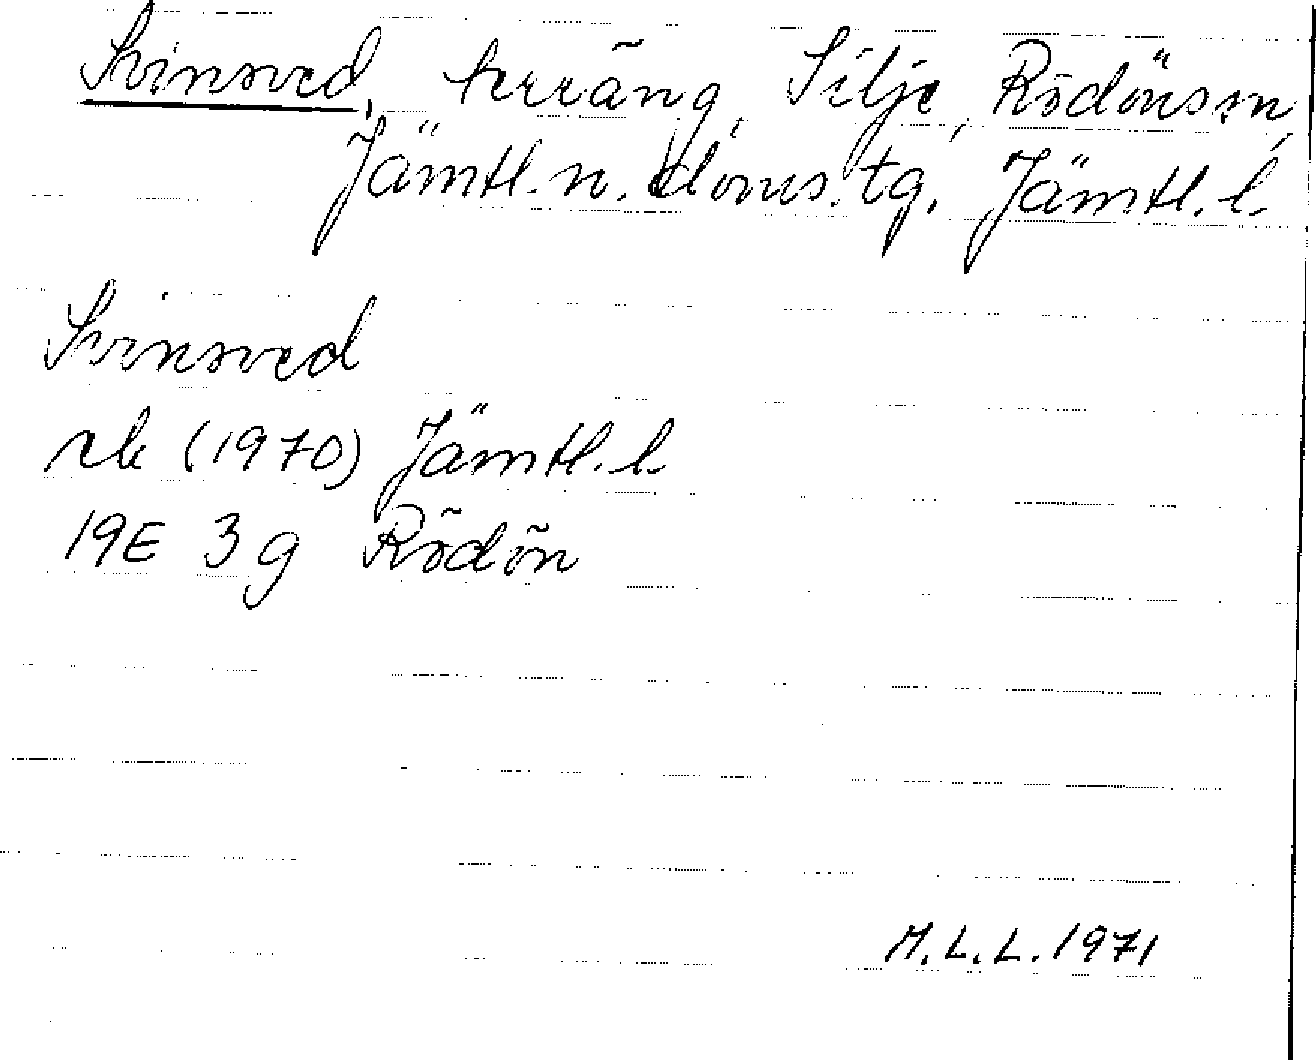 Svinsved, terräng, Silje, Rödöns sn,
Jämtl. n. doms. tg. Jämtl. l.
Svinsved
rek (1970) Jämtl. l.
19E 3g Rödön
M.L.L. 1971